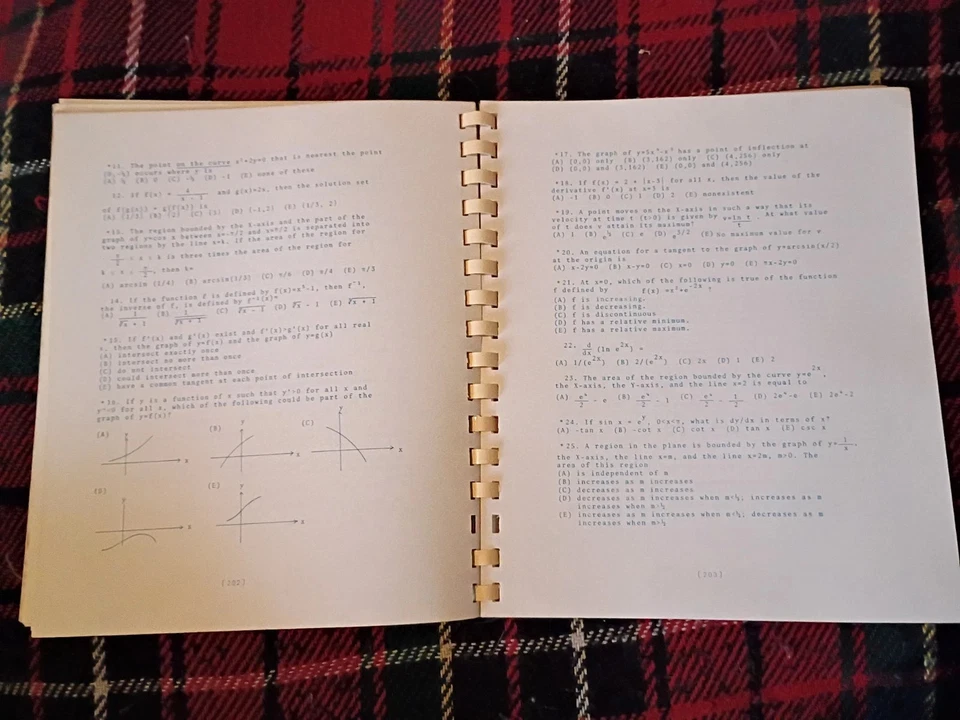 *11. The point on the curve x²+2y=0 that is nearest the point
(0,-½) occurs where y is
(A) ½ (B) 0 (C) -½ (D) -1 (E) none of these
12. If f(x) = 4/(x - 1) and g(x)=2x, then the solution set
of f(g(x)) = g(f(x)) is
(A) {1/3} (B) {2} (C) {3} (D) {-1,2} (E) {1/3, 2}
*13. The region bounded by the X-axis and the part of the
graph of y=cos x between x=-π/2 and x=π/2 is separated into
two regions by the line x=k. If the area of the region for
-π/2 < x < k is three times the area of the region for
k < x < π/2, then k=
(A) arcsin (1/4) (B) arcsin(1/3) (C) π/6 (D) π/4 (E) π/3
14. If the function f is defined by f(x)=x⁵-1, then f⁻¹,
the inverse of f, is defined by f⁻¹(x)=
*15. If f'(x) and g'(x) exist and f'(x)>g'(x) for all real
x, then the graph of y=f(x) and the graph of y=g(x)
(A) intersect exactly once
(B) intersect no more than once
(C) do not intersect
(D) could intersect more than once
(E) have a common tangent at each point of intersection
*16. If y is a function of x such that y'>0 for all x and
y"<0 for all x, which of the following could be part of the
graph of y=f(x)?
(A) (B) (C)
y y y
x x x
(D) (E)
y y
x x
*17. The graph of y=5x⁴-x⁵ has a point of inflection at
(A) (0,0) only (B) (3,162) only (C) (4,256) only
(D) (0,0) and (3,162) (E) (0,0) and (4,256)
*18. If f(x) = 2 + |x-3| for all x, then the value of the
derivative f'(x) at x=3 is
(A) -1 (B) 0 (C) 1 (D) 2 (E) nonexistent
*19. A point moves on the X-axis in such a way that its
velocity at time t (t>0) is given by v=ln t/t. At what value
of t does v attain its maximum?
(A) 1 (B) e^½ (C) e (D) e^3/2 (E) No maximum value for v
*20. An equation for a tangent to the graph of y=arcsin(x/2)
at the origin is
(A) x-2y=0 (B) x-y=0 (C) x=0 (D) y=0 (E) πx-2y=0
*21. At x=0, which of the following is true of the function
f defined by f(x) =x²+e^-2x ?
(A) f is increasing.
(B) f is decreasing.
(C) f is discontinuous
(D) f has a relative minimum.
(E) f has a relative maximum.
22. d/dx (ln e^2x) =
(A) 1/(e^2x) (B) 2/(e^2x) (C) 2x (D) 1 (E) 2
23. The area of the region bounded by the curve y=e^2x,
the X-axis, the Y-axis, and the line x=2 is equal to
(A) e⁴/2 - e (B) e⁴/2 - 1 (C) e⁴/2 - 1/2 (D) 2e⁴-e (E) 2e⁴-2
*24. If sin x = e^y, 0<x<π, what is dy/dx in terms of x?
(A) -tan x (B) -cot x (C) cot x (D) tan x (E) csc x
*25. A region in the plane is bounded by the graph of y=1/x,
the X-axis, the line x=m, and the line x=2m, m>0. The
area of this region
(A) is independent of m
(B) increases as m increases
(C) decreases as m increases
(D) decreases as m increases when m<½; increases as m
increases when m>½
(E) increases as m increases when m<½; decreases as m
increases when m>½